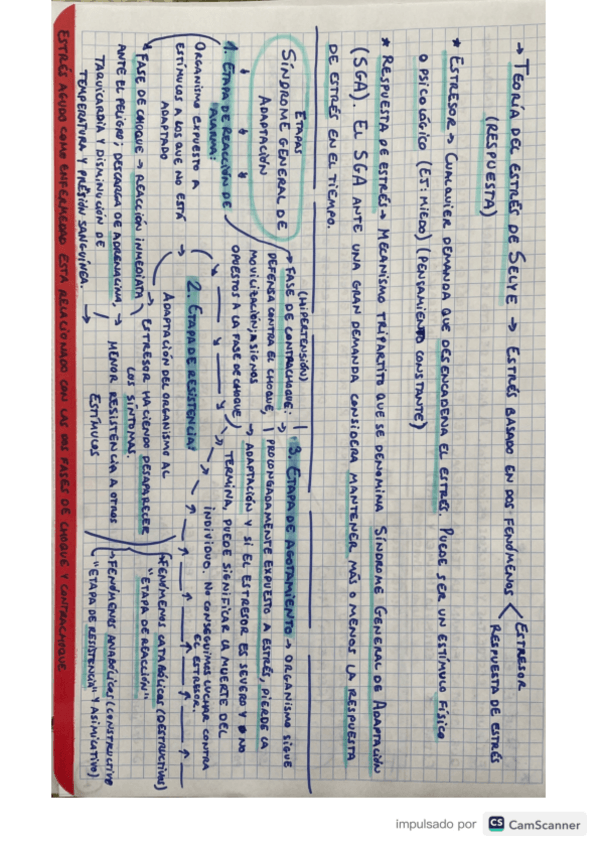 → TEORÍA DEL ESTRÉS DE SELYE → ESTRÉS BASADO EN DOS FENÓMENOS < ESTRESOR
(RESPUESTA) RESPUESTA DE ESTRÉS
* ESTRESOR → CUALQUIER DEMANDA QUE DESENCADENA EL ESTRÉS. PUEDE SER UN ESTÍMULO FÍSICO
O PSICOLÓGICO (EJ: MIEDO) (PENSAMIENTO CONSTANTE)
* RESPUESTA DE ESTRÉS → MECANISMO TRIPARTITO QUE SE DENOMINA SÍNDROME GENERAL DE ADAPTACIÓN
(SGA). EL SGA ANTE UNA GRAN DEMANDA CONSIDERA MANTENER MÁS O MENOS LA RESPUESTA
DE ESTRÉS EN EL TIEMPO.
ETAPAS
SÍNDROME GENERAL DE
ADAPTACIÓN
1. ETAPA DE REACCIÓN DE
ALARMA:
ORGANISMO EXPUESTO A
ESTÍMULOS A LOS QUE NO ESTÁ
ADAPTADO
FASE DE CHOQUE → REACCIÓN INMEDIATA
ANTE EL PELIGRO; DESCARGA DE ADRENALINA,
TAQUICARDIA Y DISMINUCIÓN DE
TEMPERATURA Y PRESIÓN SANGUÍNEA.
(HIPERTENSIÓN)
→ FASE DE CONTRACHOQUE:
DEFENSA CONTRA EL CHOQUE,
MOVILIZACIÓN; A SIGNOS
OPUESTOS A LA FASE DE CHOQUE
2. ETAPA DE RESISTENCIA:
ADAPTACIÓN DEL ORGANISMO AL
→ ESTRESOR HACIENDO DESAPARECER
LOS SÍNTOMAS.
→ MENOR RESISTENCIA A OTROS
ESTÍMULOS
3. ETAPA DE AGOTAMIENTO → ORGANISMO SIGUE
→ PROLONGADAMENTE EXPUESTO A ESTRÉS, PIERDE LA
→ ADAPTACIÓN Y SI EL ESTRESOR ES SEVERO Y NO
TERMINA, PUEDE SIGNIFICAR LA MUERTE DEL
INDIVIDUO. NO CONSEGUIMOS LUCHAR CONTRA
EL ESTRESOR.
→ FENÓMENOS CATABÓLICOS (DESTRUCTIVOS)
"ETAPA DE REACCIÓN"
→ FENÓMENOS ANABÓLICOS (CONSTRUCTIVO
"ETAPA DE RESISTENCIA" Y ASIMILATIVO)
ESTRÉS AGUDO COMO ENFERMEDAD ESTA RELACIONADO CON LAS DOS FASES DE CHOQUE Y CONTRACHOQUE
impulsado por CS CamScanner